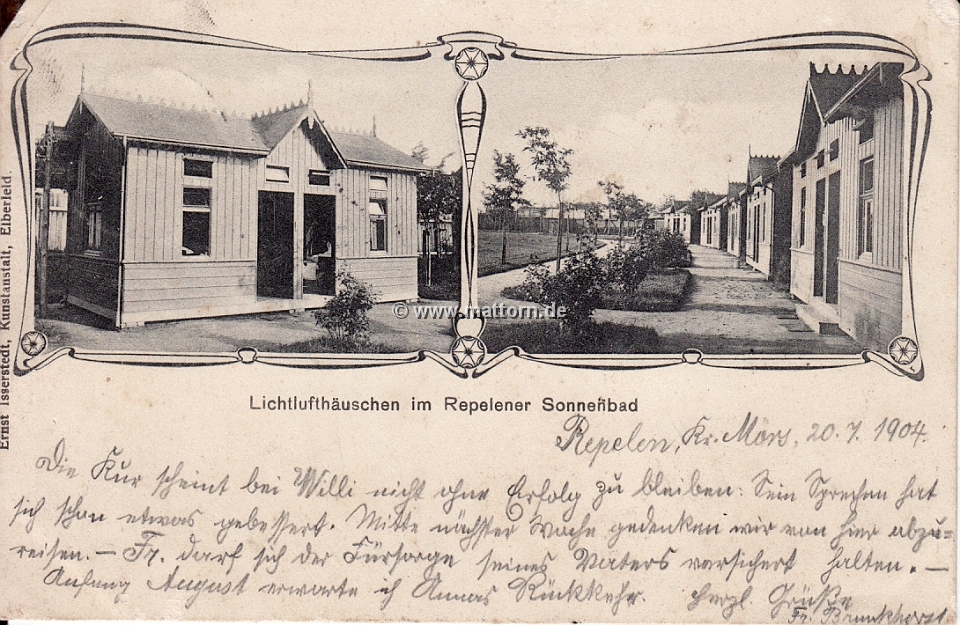 Ernst Isserstedt, Kunstanstalt, Elberfeld.
© www.mattorn.de
Lichtlufthäuschen im Repelener Sonnenbad
Repelen, Kr. Mörs, 20.7.1904.
Die Kur scheint bei Willi nicht ohne Erfolg zu bleiben: Sein Sprechen hat
sich schon etwas gebessert. Mitte nächster Woche gedenken wir von hier abzu=
reisen. – Fr. darf sich der Fürsorge seines Vaters versichert halten. –
Anfang August erwarte ich Annas Rückkehr. Herzl. Grüße
Fr. Brunkhorst.